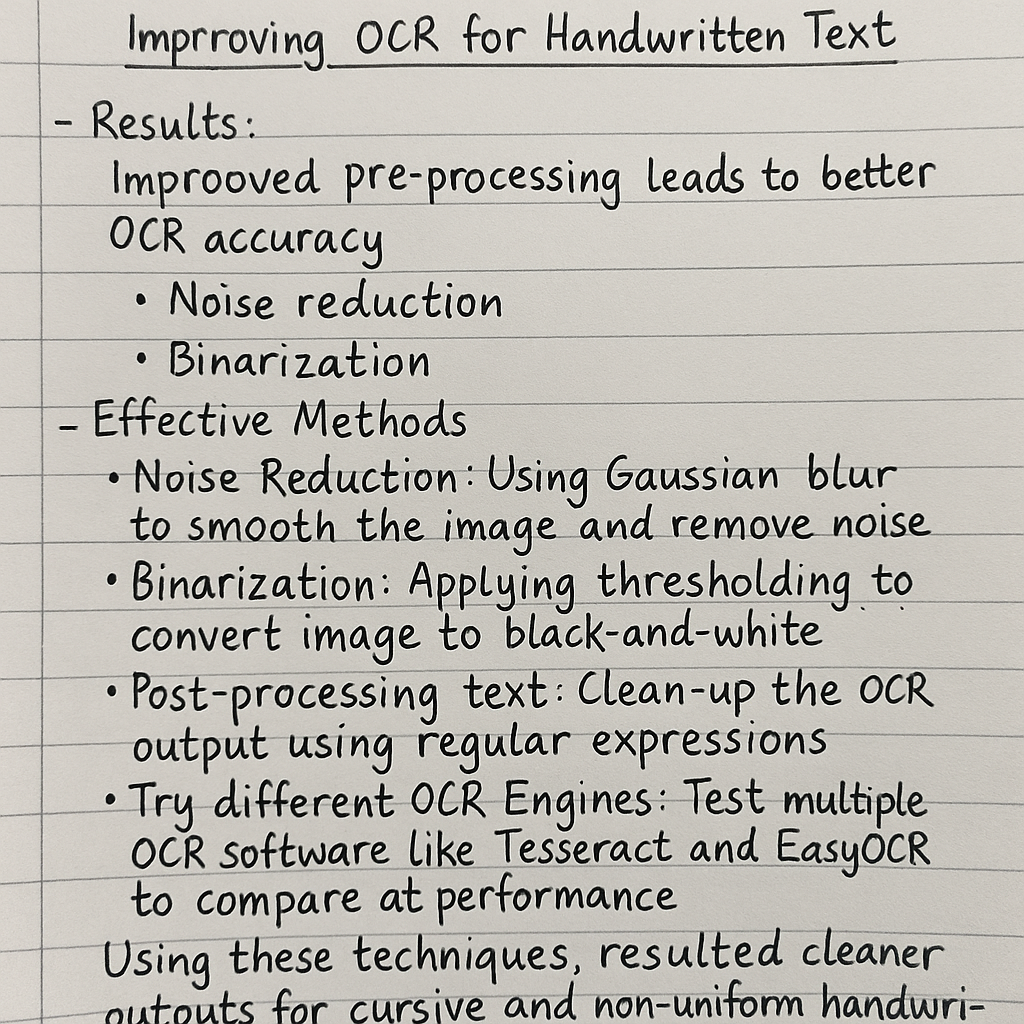 Imprroving OCR for Handwritten Text
- Results:
Improoved pre-processing leads to better
OCR accuracy
• Noise reduction
• Binarization
- Effective Methods
• Noise Reduction: Using Gaussian blur
to smooth the image and remove noise
• Binarization: Applying thresholding to
convert image to black-and-white
• Post-processing text: Clean-up the OCR
output using regular expressions
• Try different OCR Engines: Test multiple
OCR software like Tesseract and EasyOCR
to compare at performance
Using these techniques, resulted cleaner
outouts for cursive and non-uniform handwri-